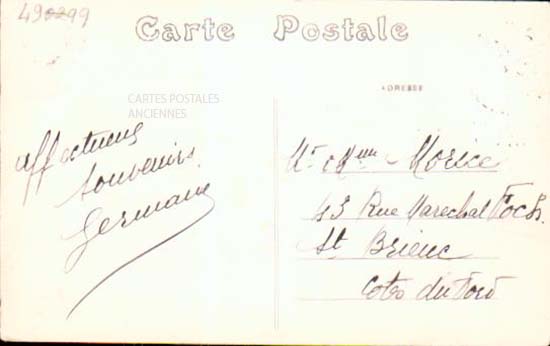 490299
Carte Postale
ADRESSE
CARTES POSTALES
ANCIENNES
affectueux
souvenirs
Germaine
Mr & Mme Morice
43 Rue Marechal Foch.
St Brieuc
Cotes du Nord